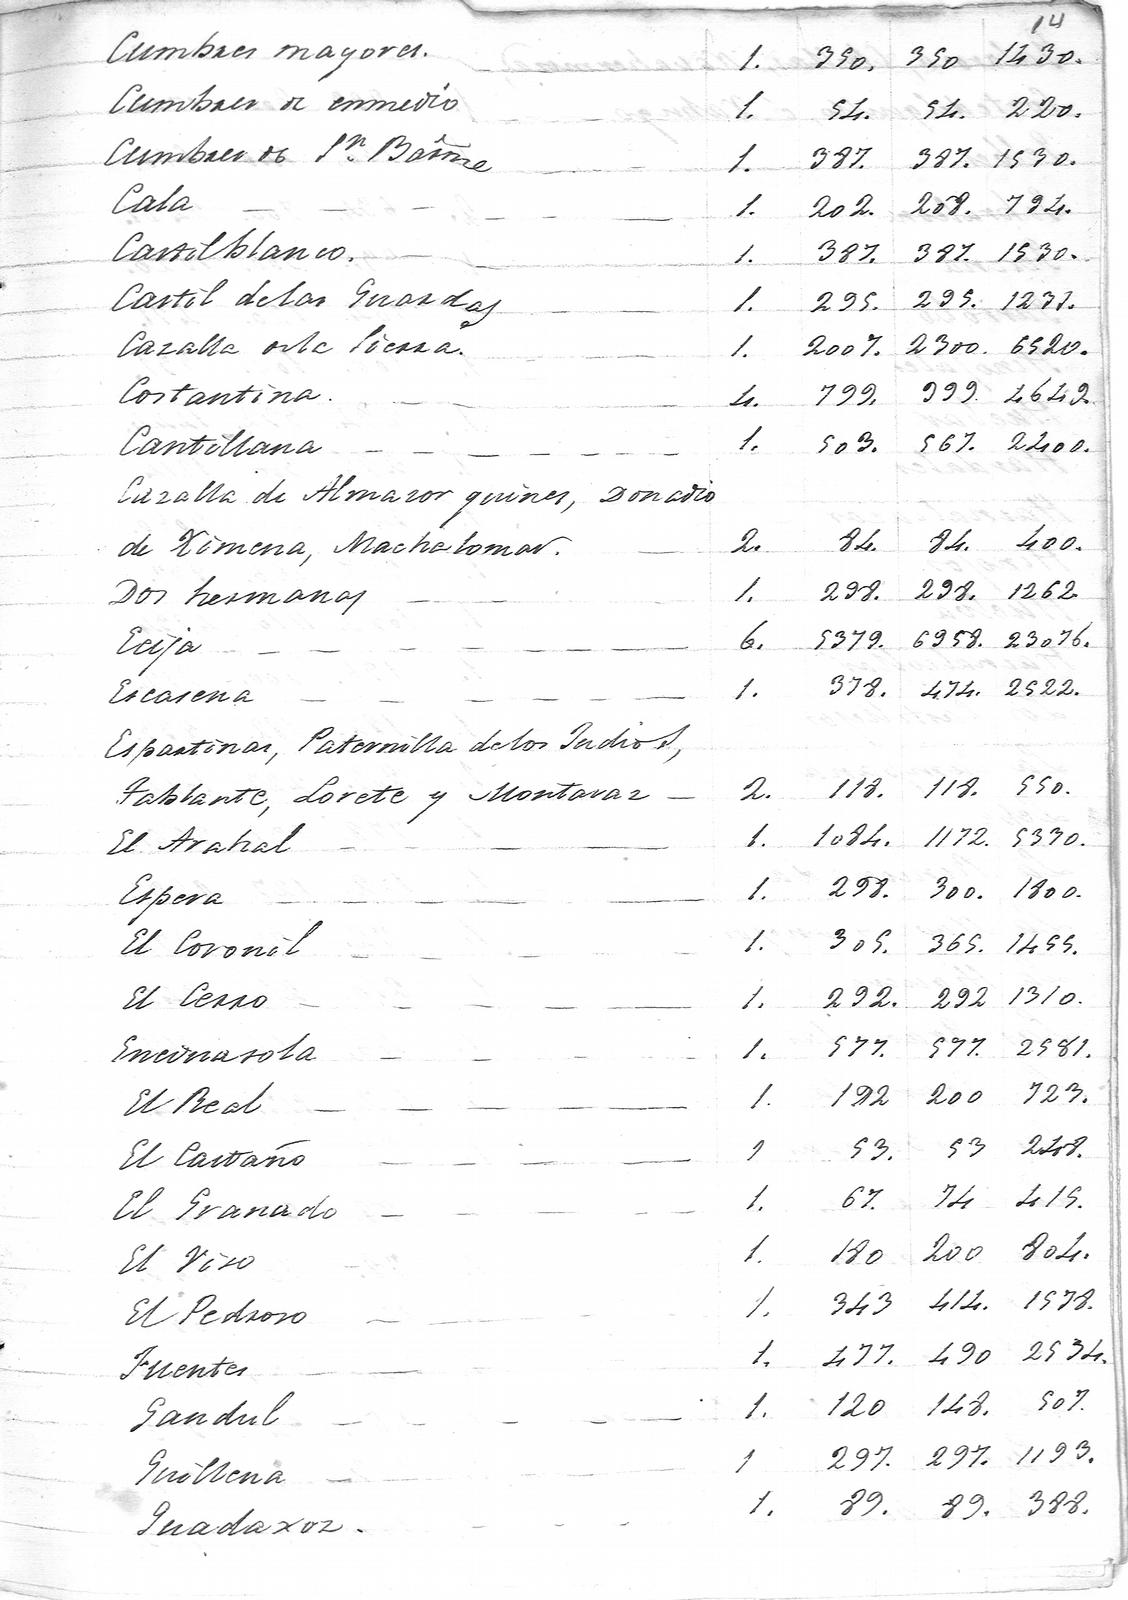 14
Cumbres mayores. 1. 350. 350 1430.
Cumbres de enmedio 1. 54. 54. 220.
Cumbres de Sn. Barme 1. 387. 387. 1530.
Cala 1. 202. 208. 794.
Castilblanco. 1. 387. 387. 1530.
Castil delas Guardas 1. 295. 295. 1231.
Cazalla dela Sierra. 1. 2007. 2300. 6520.
Costantina. 4. 799. 999 4642.
Cantillana 1. 503. 567. 2400.
Cazalla de Almazor quines, Donadio
de Ximena, Machalomar. 2. 84. 84. 400.
Dos hermanas 1. 298. 298. 1262.
Ecija 6. 5379. 6958. 23076.
Escasena 1. 378. 474. 2522.
Espartinas, Paternilla delos Judios,
Tablante, Lorete y Montavaz 2. 118. 118. 550.
El Arahal 1. 1084. 1172. 5330.
Espera 1. 298. 300. 1800.
El Coronil 1. 305. 365. 1455.
El Cerro 1. 292. 292 1310.
Encinasola 1. 577. 577. 2581.
El Real 1. 192 200 723.
El Castaño 1 53. 53 248.
El Granado 1. 67. 74 415.
El Viso 1. 180 200 804.
El Pedroso 1. 343 414. 1578.
Fuentes 1. 477. 490 2534.
Gandul 1. 120 148. 507.
Guillena 1 297. 297. 1193.
Guadaxoz. 1. 89. 89. 388.